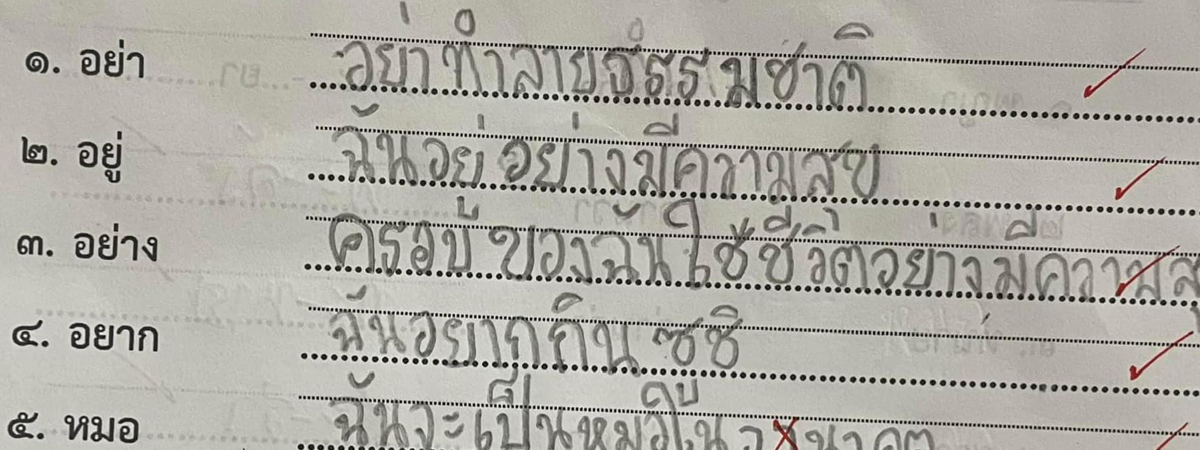 ๑. อย่า อย่าทำลายธรรมชาติ
๒. อยู่ ฉันอยู่อย่างมีความสุข
๓. อย่าง ครอบ ของฉันใช้ชีวิตอย่างมีความสุ
๔. อยาก ฉันอยากกินซูชิ
๕. หมอ ฉันจะเป็นหมอใน